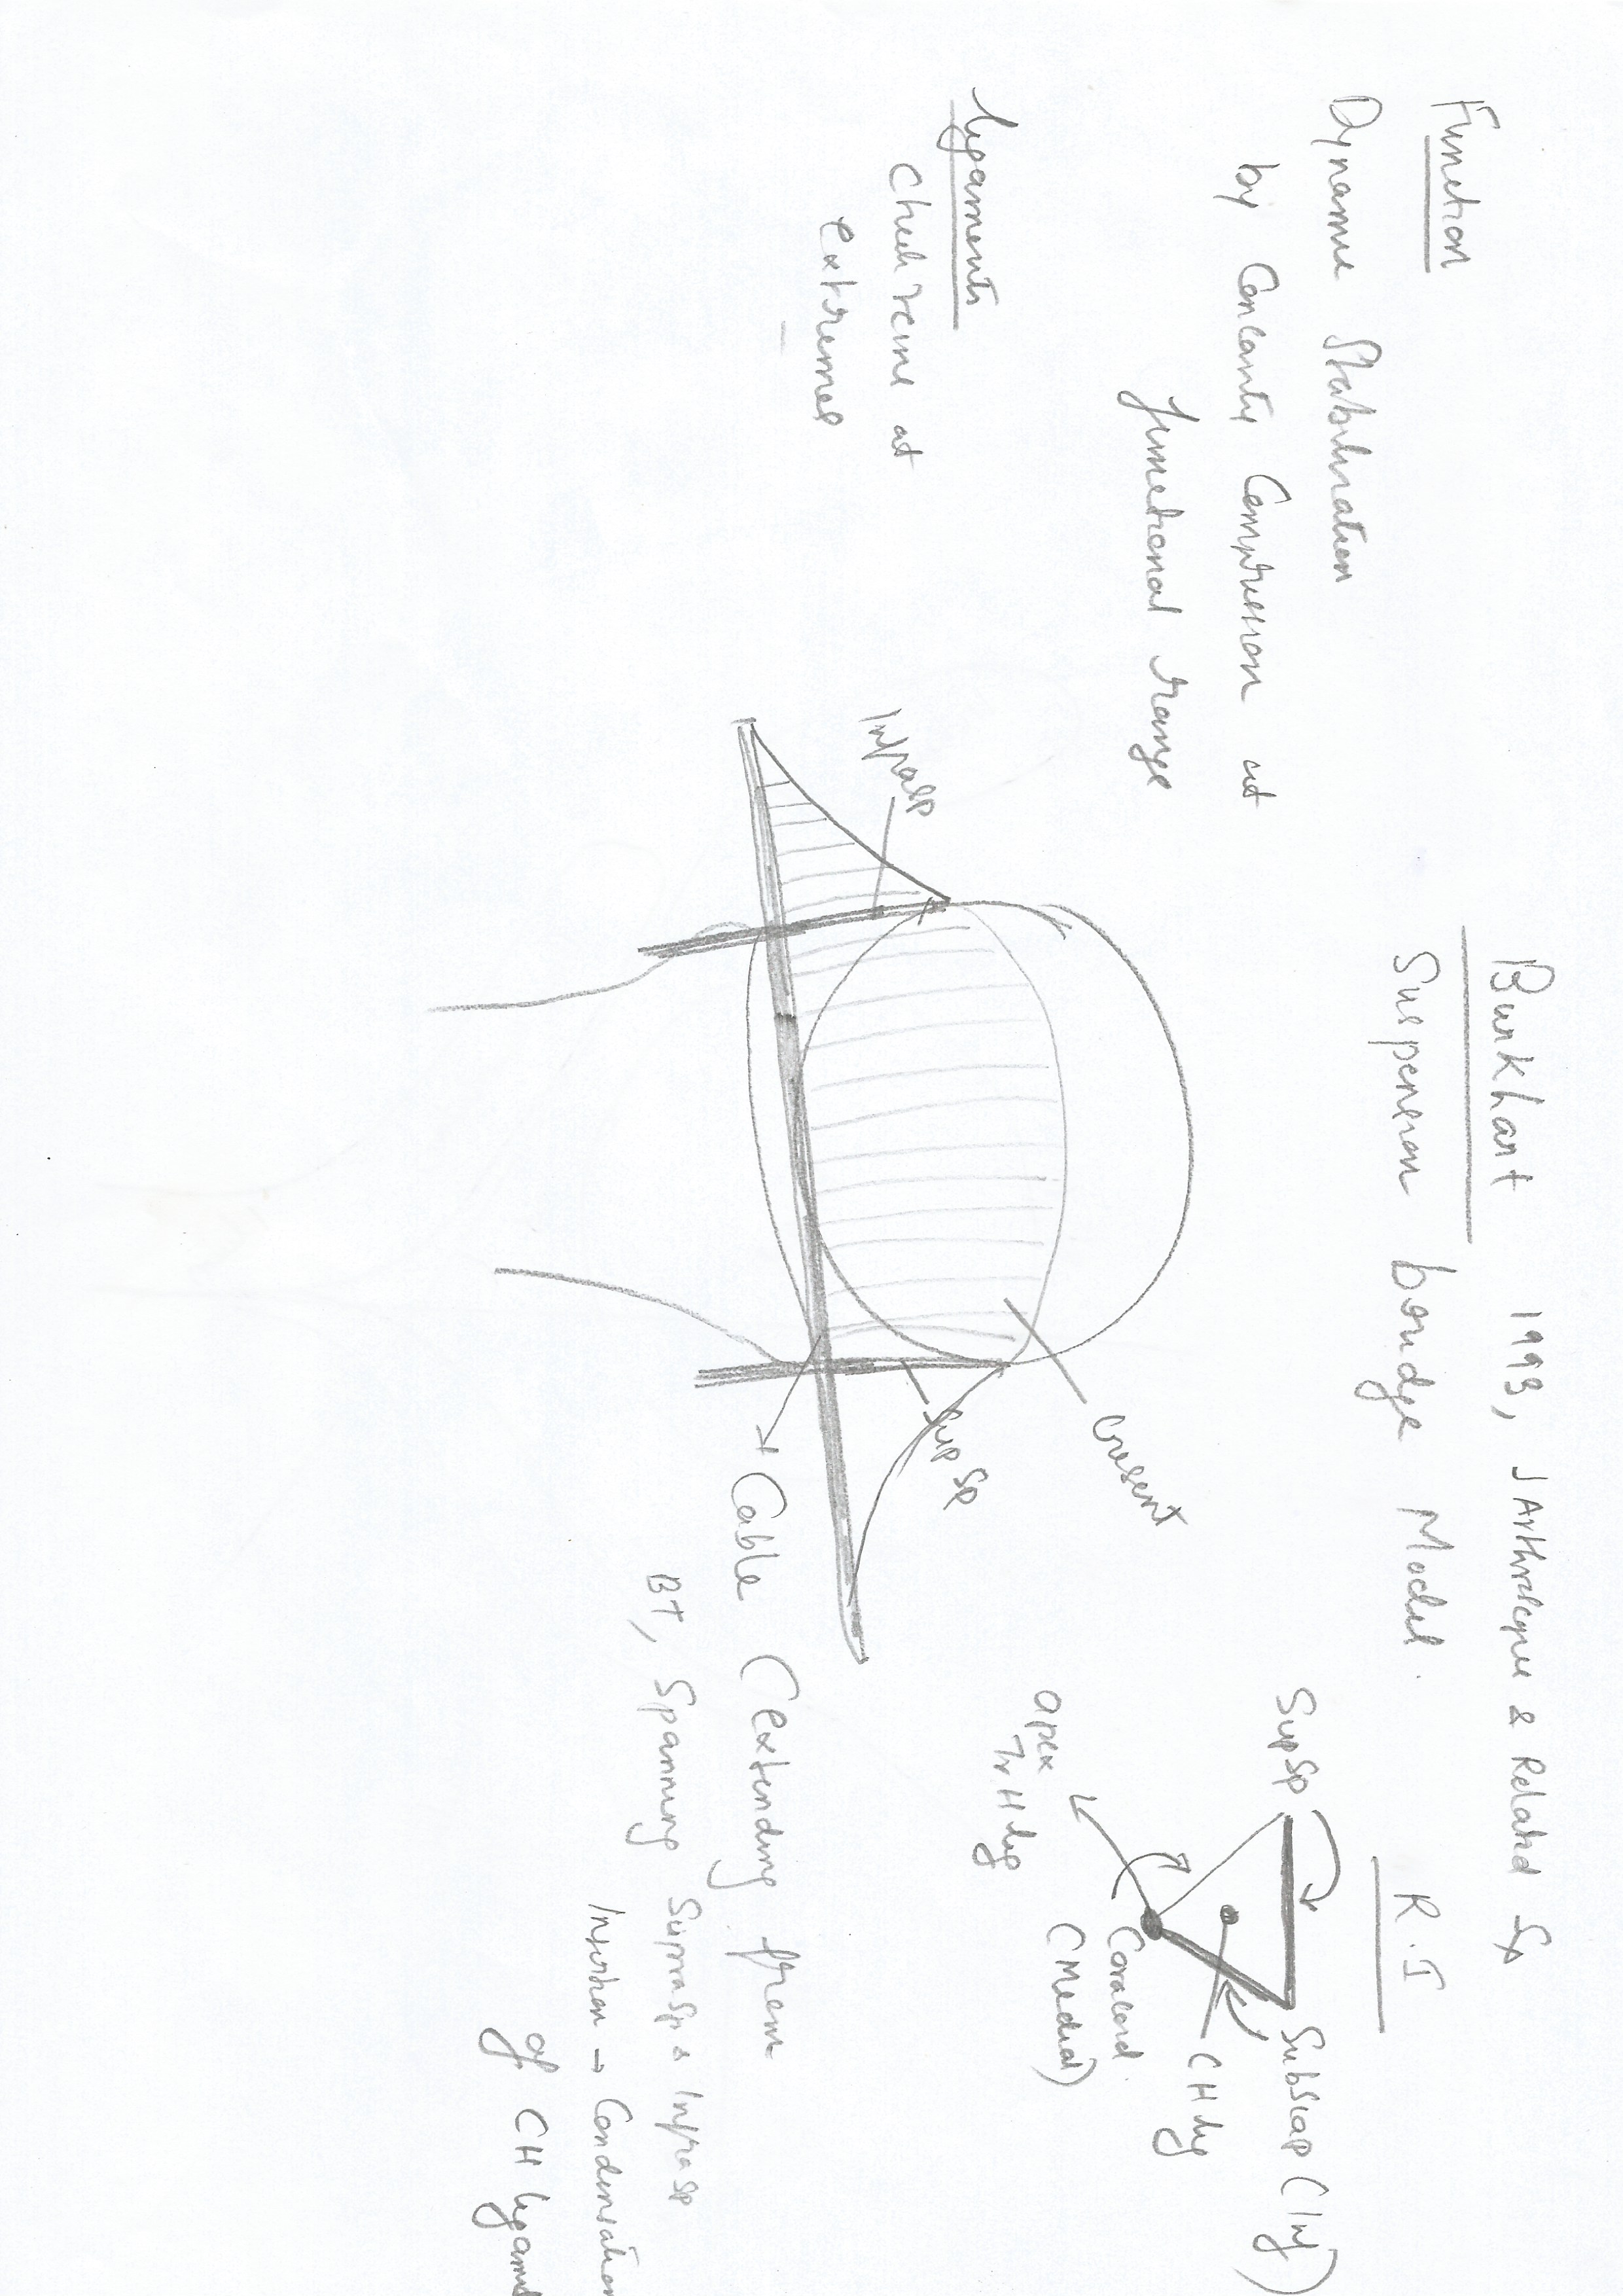 Burkhart 1993, J Arthroscopic & Related Sx
Suspension bridge Model.
Function
Dynamic Stabilisation
by Concavity Compression at
functional range
ligaments
Check reins at
extremes
R.I
SupSp
Subscap (Inf)
CH lig
Coracoid
(Medial)
apex
Tr H lig
Cresent
SupSp
Infrasp
Cable (extending from
BT, Spanning SupraSp & InfraSp
Insertion → Condensation
of CH ligament